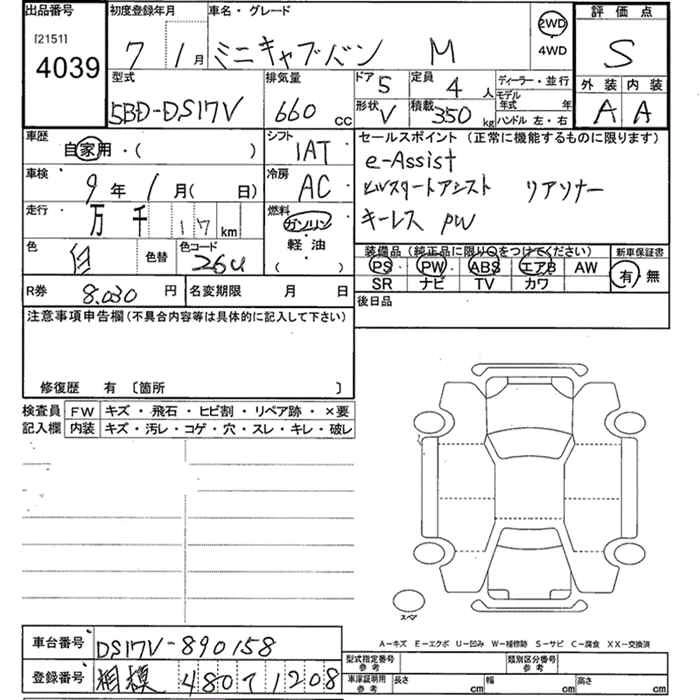 出品番号
[2151]
4039
初度登録年月
7年 1月
車名・グレード
ミニキャブバン M
2WD
4WD
評価点
S
外装 内装
A A
型式
5BD-DS17V
排気量
660 cc
ドア 5
形状 V
定員 4 人
積載 350 kg
ディーラー・並行
モデル年式 年
ハンドル 左・右
車歴
自家用・( )
シフト
IAT
セールスポイント (正常に機能するものに限ります)
e-Assist
ヒルスタートアシスト リアソナー
キーレス PW
車検
9年 1月( 日)
冷房
AC
走行
万 千 17 km
燃料
ガソリン
軽油
( )
色
白
色替
色コード
26U
装備品 (純正品に限り○をつけてください)
PS PW ABS エアB AW
SR ナビ TV カワ
新車保証書
有 無
R券 8.030 円
名変期限 月 日
後日品
注意事項申告欄 (不具合内容等は具体的に記入して下さい)
修復歴 有 〔箇所 〕
検査員記入欄
FW キズ・飛石・ヒビ割・リペア跡・×要
内装 キズ・汚レ・コゲ・穴・スレ・キレ・破レ
スペア
A-キズ E-エクボ U-凹み W-補修跡 S-サビ C-腐食 XX-交換済
車台番号 DS17V-890158
登録番号 相模 480 て 1208
型式指定番号 参考
類別区分番号 参考
車庫証明用 参考
長さ cm
幅 cm
高さ cm